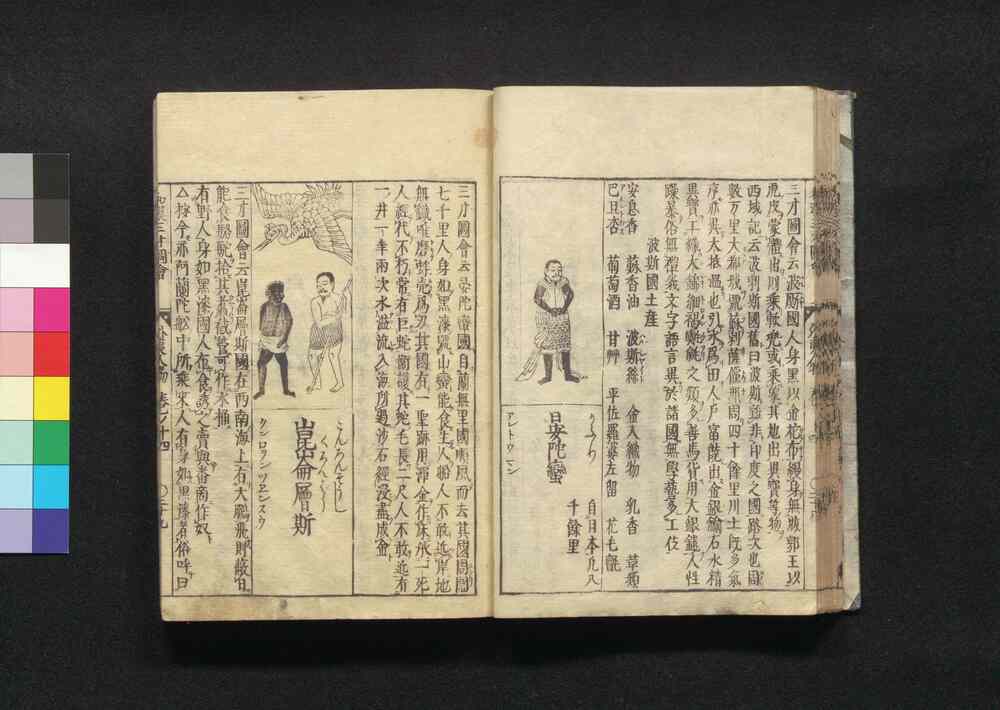 三才圖會云波斯國人身黑以金花布縵身無城郭王以
虎皮蒙體出則乘軟兜或乘象其地出異寶等物
西域記云波剌斯國舊曰波斯雖非印度之國路次也周
數万里大都城號蘇剌薩儻那周四十餘里川土既多氣
序亦異大抵溫也引水爲田人戶富饒出金銀鍮石水精
異寶工織大錦細褐氍毹之類多善馬貨用大銀錢人性
躁暴俗無禮義文字語言異於諸國無學藝多工伎
波斯國土産
安息香 蘇香油 波斯絲 金入織物 乳香 草類
巴旦杏 葡萄酒 甘艸 花毛氈
自日本凡八
千餘里
晏陀蠻
アントウマン
三才圖會云晏陀蠻國自藍無里國順風而去其國周圍
七千里人身如黑漆號山蠻能食生人船人不敢近岸地
無鐵唯磨蚌殼爲刃其國有一聖跡用渾金作床承一死
人經代不朽常有巨蛇衞護其蛇毛長二尺人不敢近有
一井一年兩次水溢流入海所過沙石經浸盡成金
崑崙層斯
こんろんそうし
くろんほう
クンロンツヱンスウ
三才圖會云崑崙層斯國在西南海上有大鵬飛則蔽日
能食駱駝拾其翅截管可作水桶
有野人身如黑漆國人布食誘之賣與番商作奴
△按今亦阿蘭陀舩中所乘來人有身如黑漆者俗呼曰